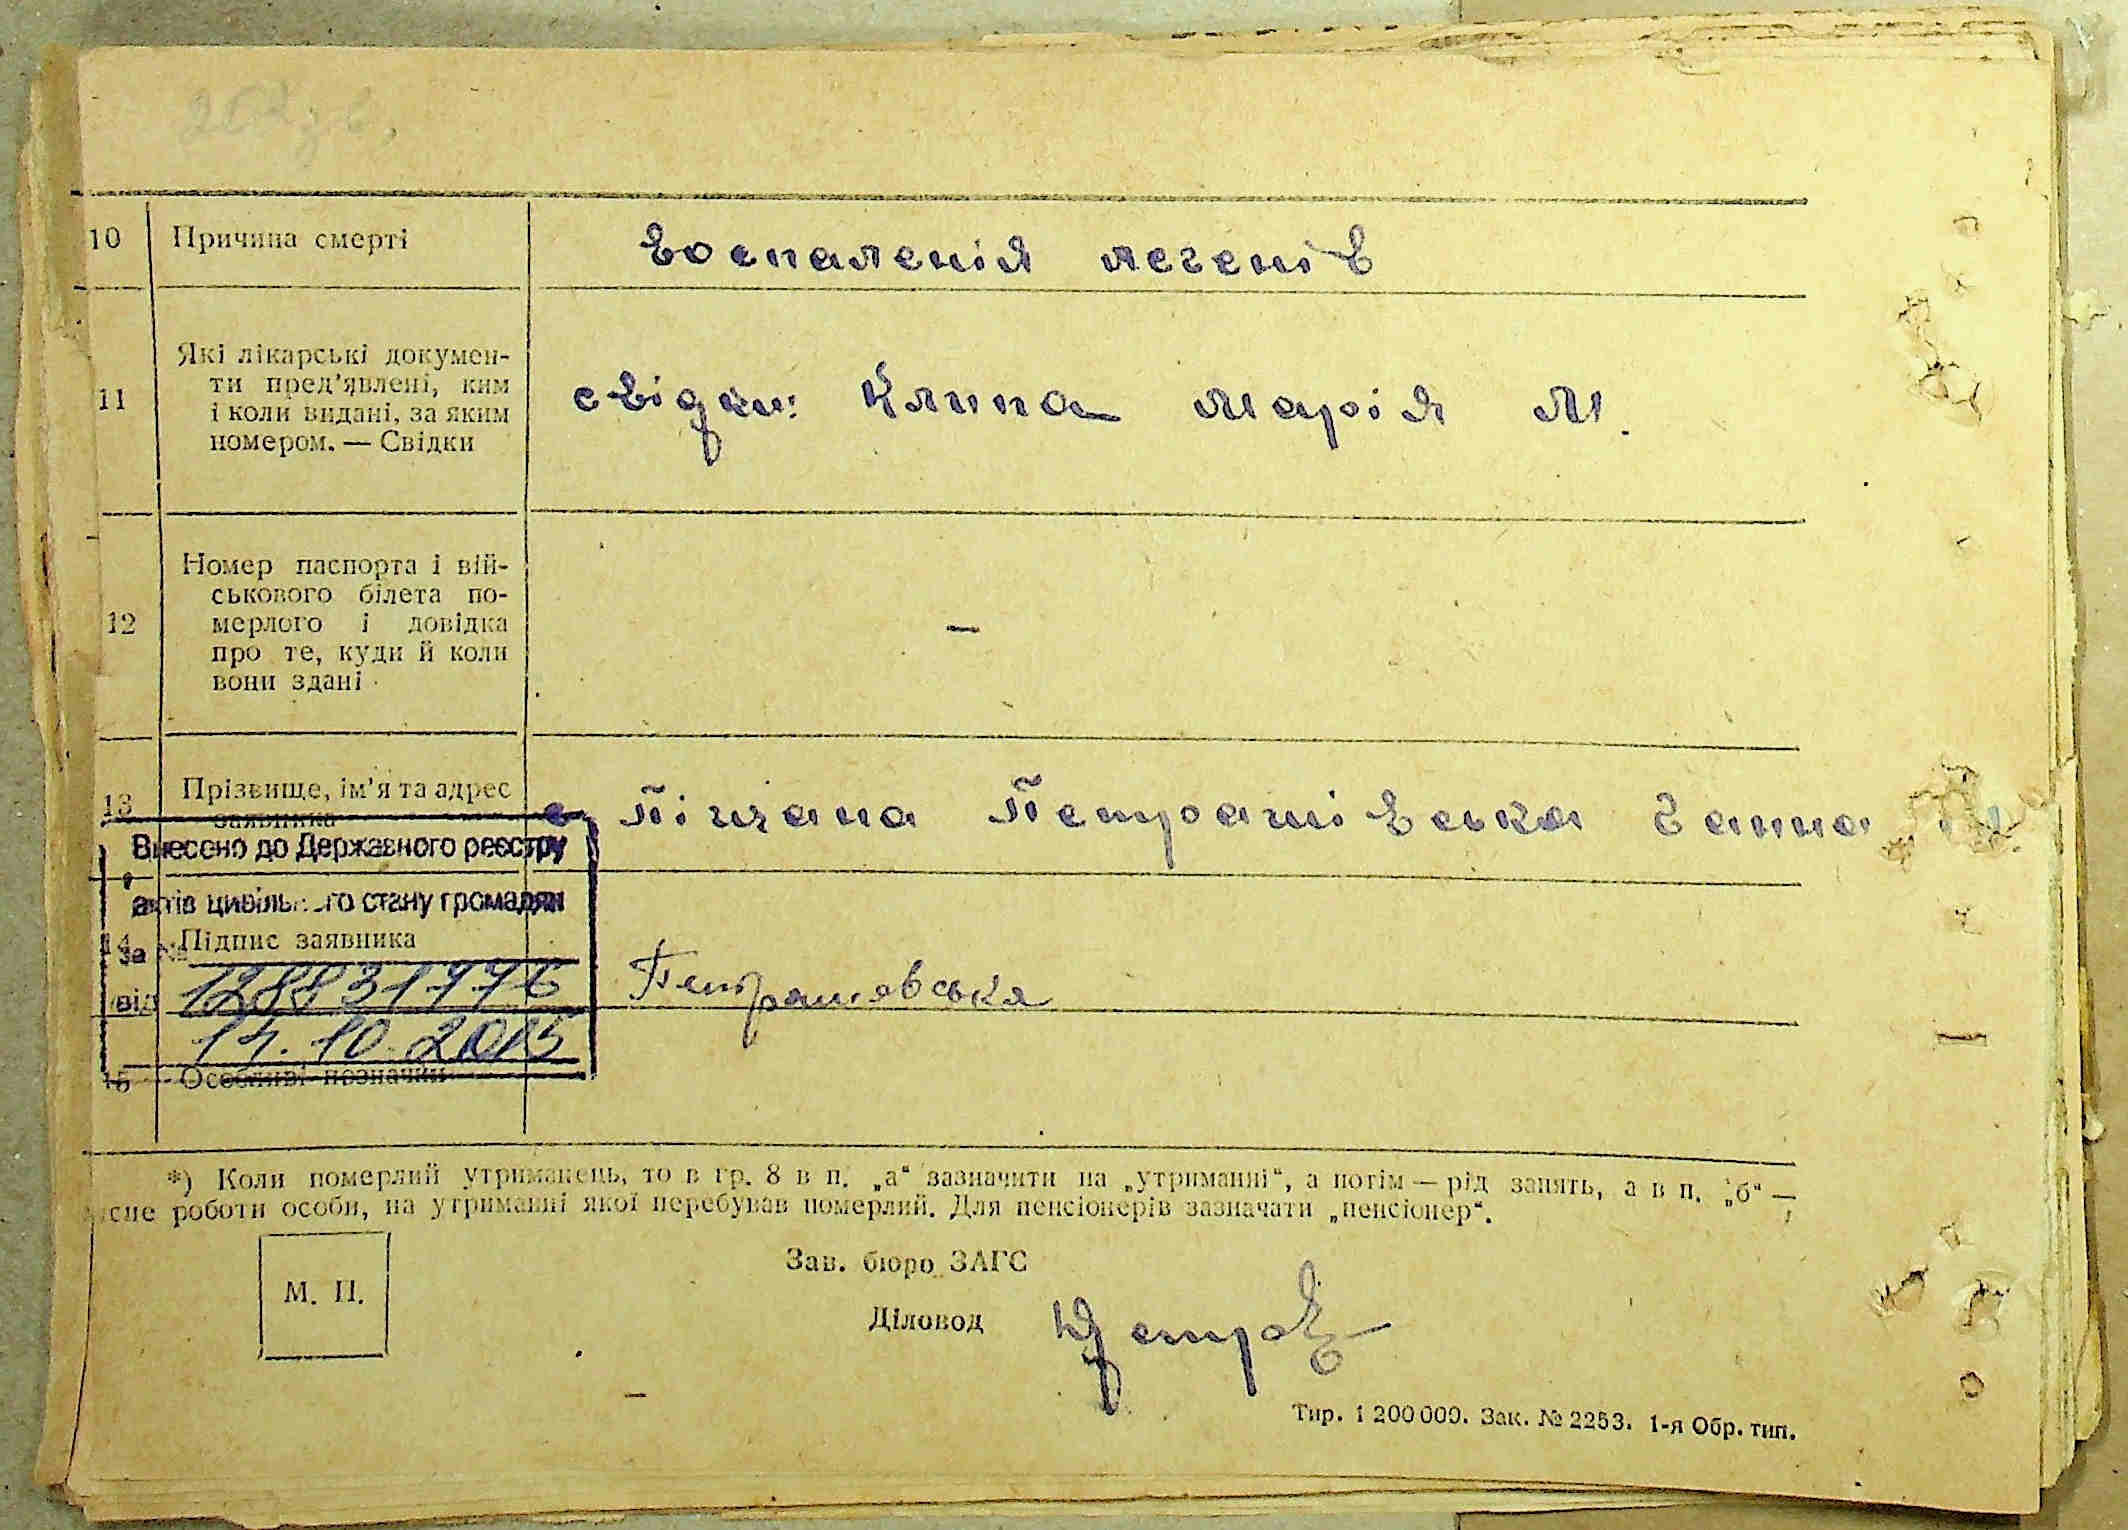 10 Причина смерті воспаленія легенів
11 Які лікарські докумен-
ти пред'явлені, ким
і коли видані, за яким
номером. — Свідки
свідки: Клипа Марія М.
12 Номер паспорта і вій-
ськового білета по-
мерлого і довідка
про те, куди й коли
вони здані
—
13 Прізвище, ім'я та адрес
заявника
с Піщана Петрашівська Ганна
Внесено до Державного реєстру
актів цивільного стану громадян
14 Підпис заявника
Петрашевська
за № 128831776
від 14.10.2015
15 Особливі позначки
*) Коли померлий утриманець, то в гр. 8 в п. „а“ зазначити на „утриманні“, а потім — рід занять, а в п. „б“ —
місце роботи особи, на утриманні якої перебував померлий. Для пенсіонерів зазначати „пенсіонер“.
М. П.
Зав. бюро ЗАГС
Діловод
Тир. 1 200 000. Зак. № 2253. 1-я Обр. тип.